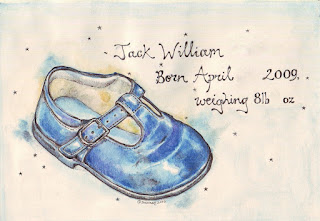 Jack William
Born April 2009
weighing 8lb oz